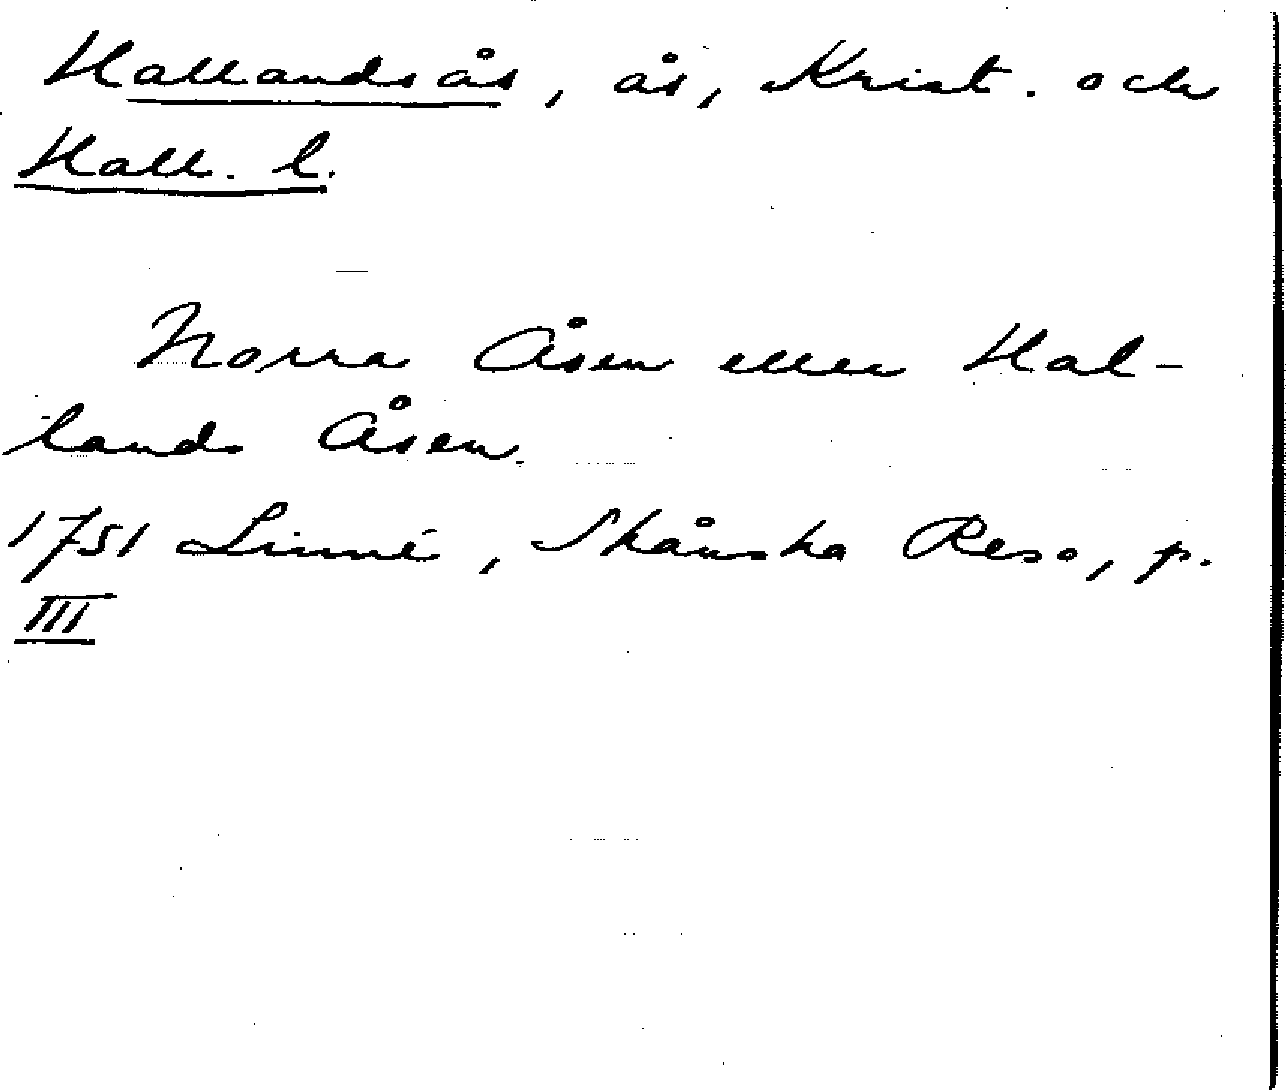 Hallandsås, ås, Krist. och
Hall. l.
Norra Åsen eller Hal-
lands Åsen.
1751 Linné, Skånska Resa, p.
III